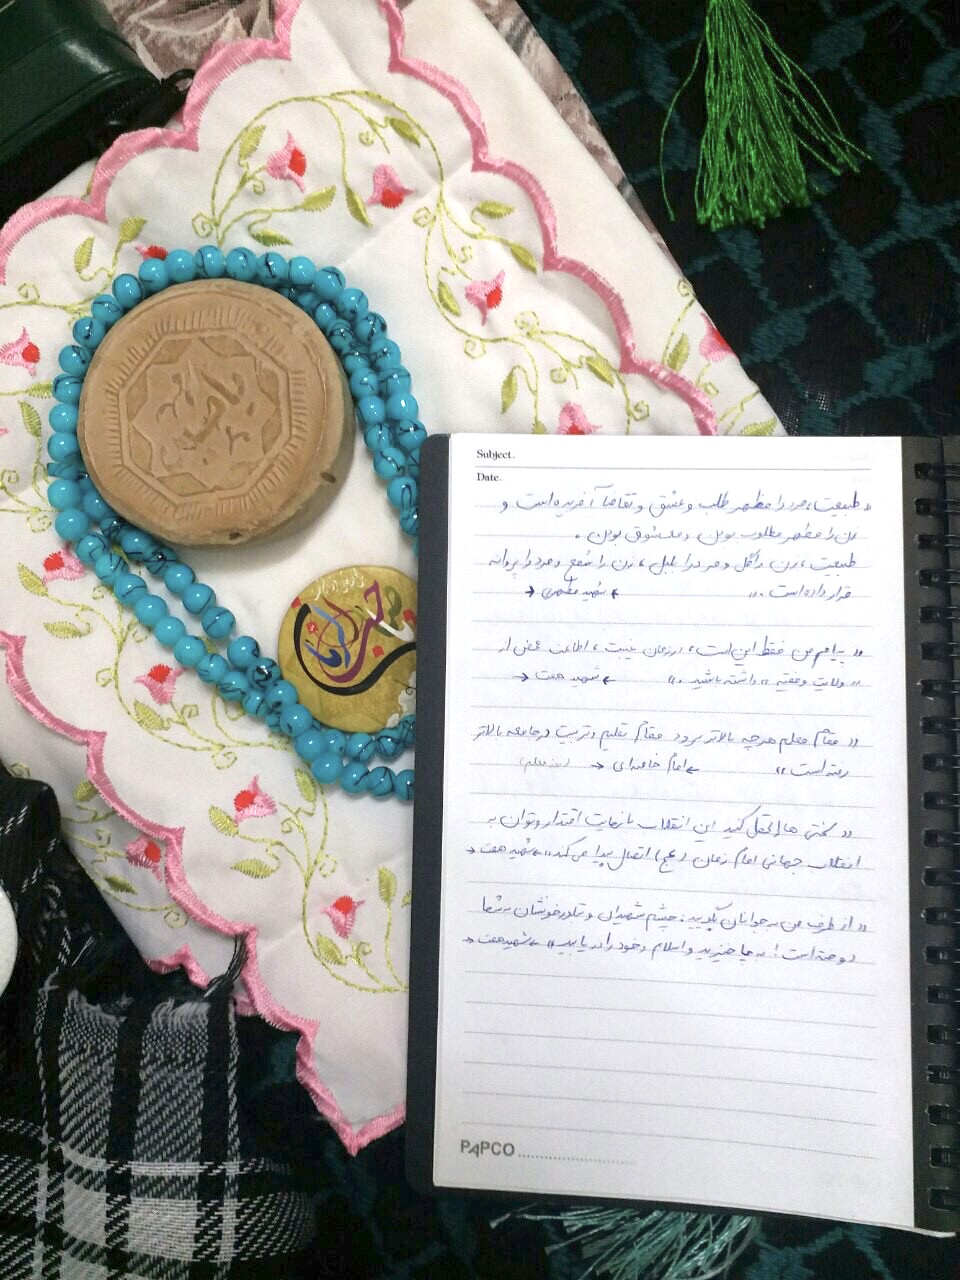 Subject.
Date.
« طبیعت، مرد را مظهر طلب و عشق و تقاضا آفریده است و
زن را مظهر مطلوب بودن و معشوق بودن .
طبیعت، زن را گل و مرد را بلبل، زن را شمع و مرد را پروانه
قرار داده است . » ← شهید مطهری →
« پیام من فقط این است، در زمان غیبت، اطاعت محض از
« ولایت وفقیه » داشته باشید . » ← شهید همت →
« مقام معلم هرچه بالاتر برود مقام تعلیم و تربیت در جامعه بالاتر
رفته است » ← امام خامنه‌ای → (روز معلم)
« سختی ها را تحمل کنید این انقلاب با نهایت اقتدار و توان به
انقلاب جهانی امام زمان (عج) اتصال پیدا می‌کند » ← شهید همت →
« از طرف من به جوانان بگویید: چشم شهیدان و تبلور خونشان به شما
دوخته است! به پا خیزید و اسلام و خود را دریابید » ← شهید همت →
PAPCO